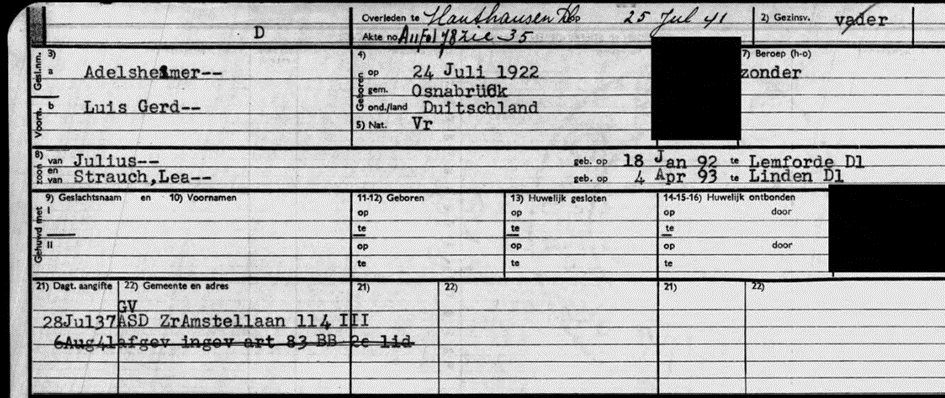 Overleden te Hauthausen Dl op 25 Jul 41 2) Gezinsv. vader
D
Akte no. A11Fol78zie-35
3) Gesl.nm. a Adelsheimer--
4) Geboren op 24 Juli 1922
7) Beroep (h-o) zonder
gem. Osnabrück
Voorn. b Luis Gerd--
ond./land Duitschland
5) Nat. Vr
8) zoon van Julius-- geb. op 18 Jan 92 te Lemforde Dl
en van Strauch,Lea-- geb. op 4 Apr 93 te Linden Dl
Gehuwd met 9) Geslachtsnaam en 10) Voornamen 11-12) Geboren 13) Huwelijk gesloten 14-15-16) Huwelijk ontbonden
I op op op door
te te te
II op op op door
te te te
21) Dagt. aangifte 22) Gemeente en adres 21) 22) 21) 22)
GV
28Jul37 ASD ZrAmstellaan 114 III
6Aug41 afgev ingev art 83 BB 2e lid